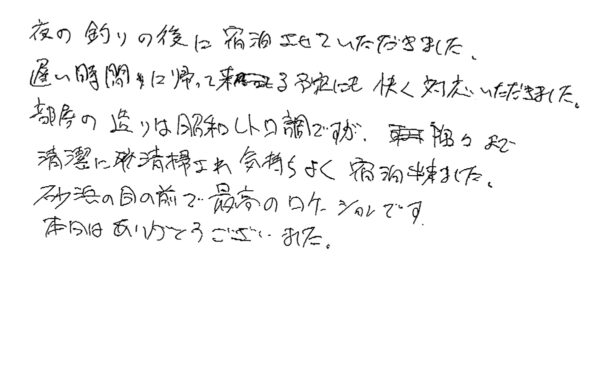 夜の釣りの後に宿泊させていただきました。
遅い時間に帰って来る予定にも快く対応いただきました。
部屋の造りは昭和レトロ調ですが、隅々まで
清潔に清掃され気持ちよく宿泊出来ました。
砂浜の目の前で最高のロケーションです。
本日はありがとうございました。